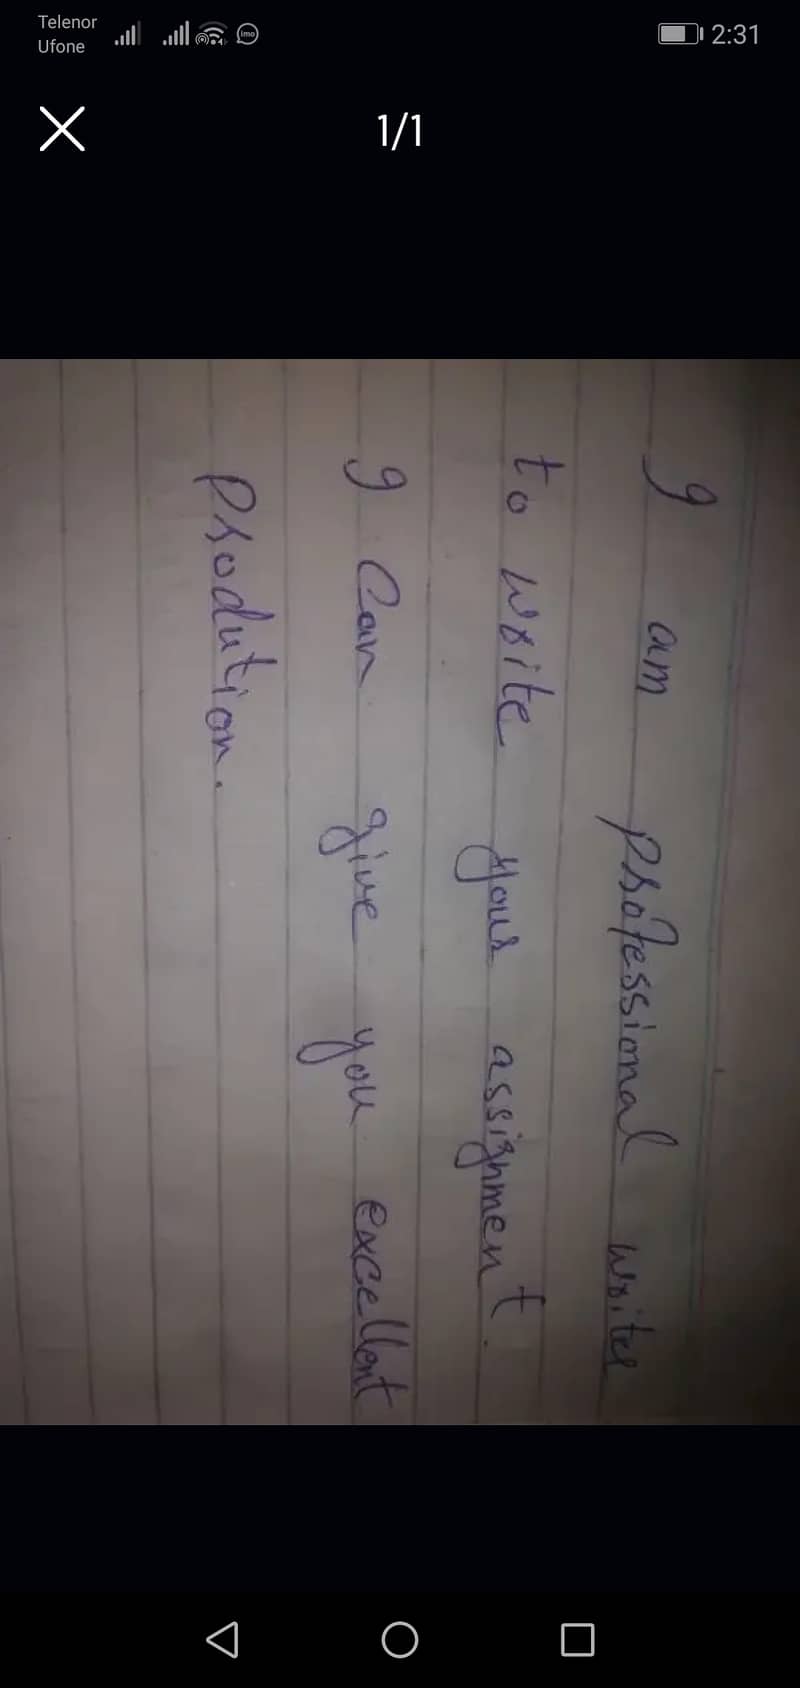 Telenor
Ufone
imo
2:31
1/1
I am professional writer
to write your assignment.
I Can give you excellent
Prodution.